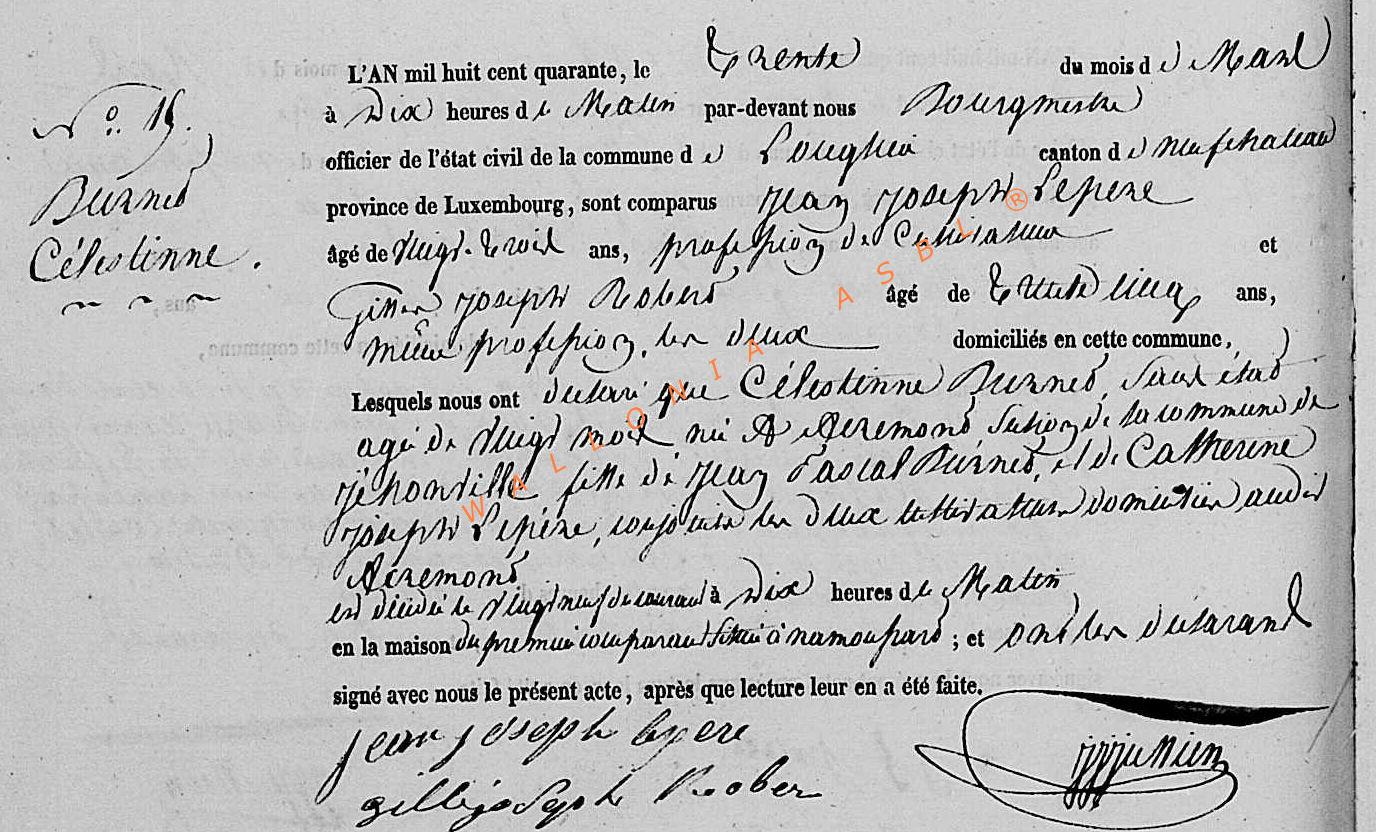 N° 15.
Burnet
Célestinne.
L'AN mil huit cent quarante, le trente du mois d e Mars
à Dix heures d le Matin par-devant nous Bourgmestre
officier de l'état civil de la commune d e canton d e neufchateau
province de Luxembourg, sont comparus Jean Joseph Lepere
âgé de vingt-trois ans, profession de Cultivateur et
Joseph Robert âgé de trente cinq ans,
même profession, les deux domiciliés en cette commune,
Lesquels nous ont déclaré que Célestinne Burnet, sans état
agé de vingt mois né A Acremont section de la commune de
Jéhonville fille de Jean Pascal Burnet, et de Catherine
Joseph Lepére, conjoints les deux cultivateurs domiciliés audit
Acremont
est décédé le vingt neuf du courant à Dix heures d le Matin
en la maison du premier comparant située à namoupard ; et ont les déclarant
signé avec nous le présent acte, après que lecture leur en a été faite.
jean joseph lepere
gille joseph Robert
WALLONIA ASBL ®